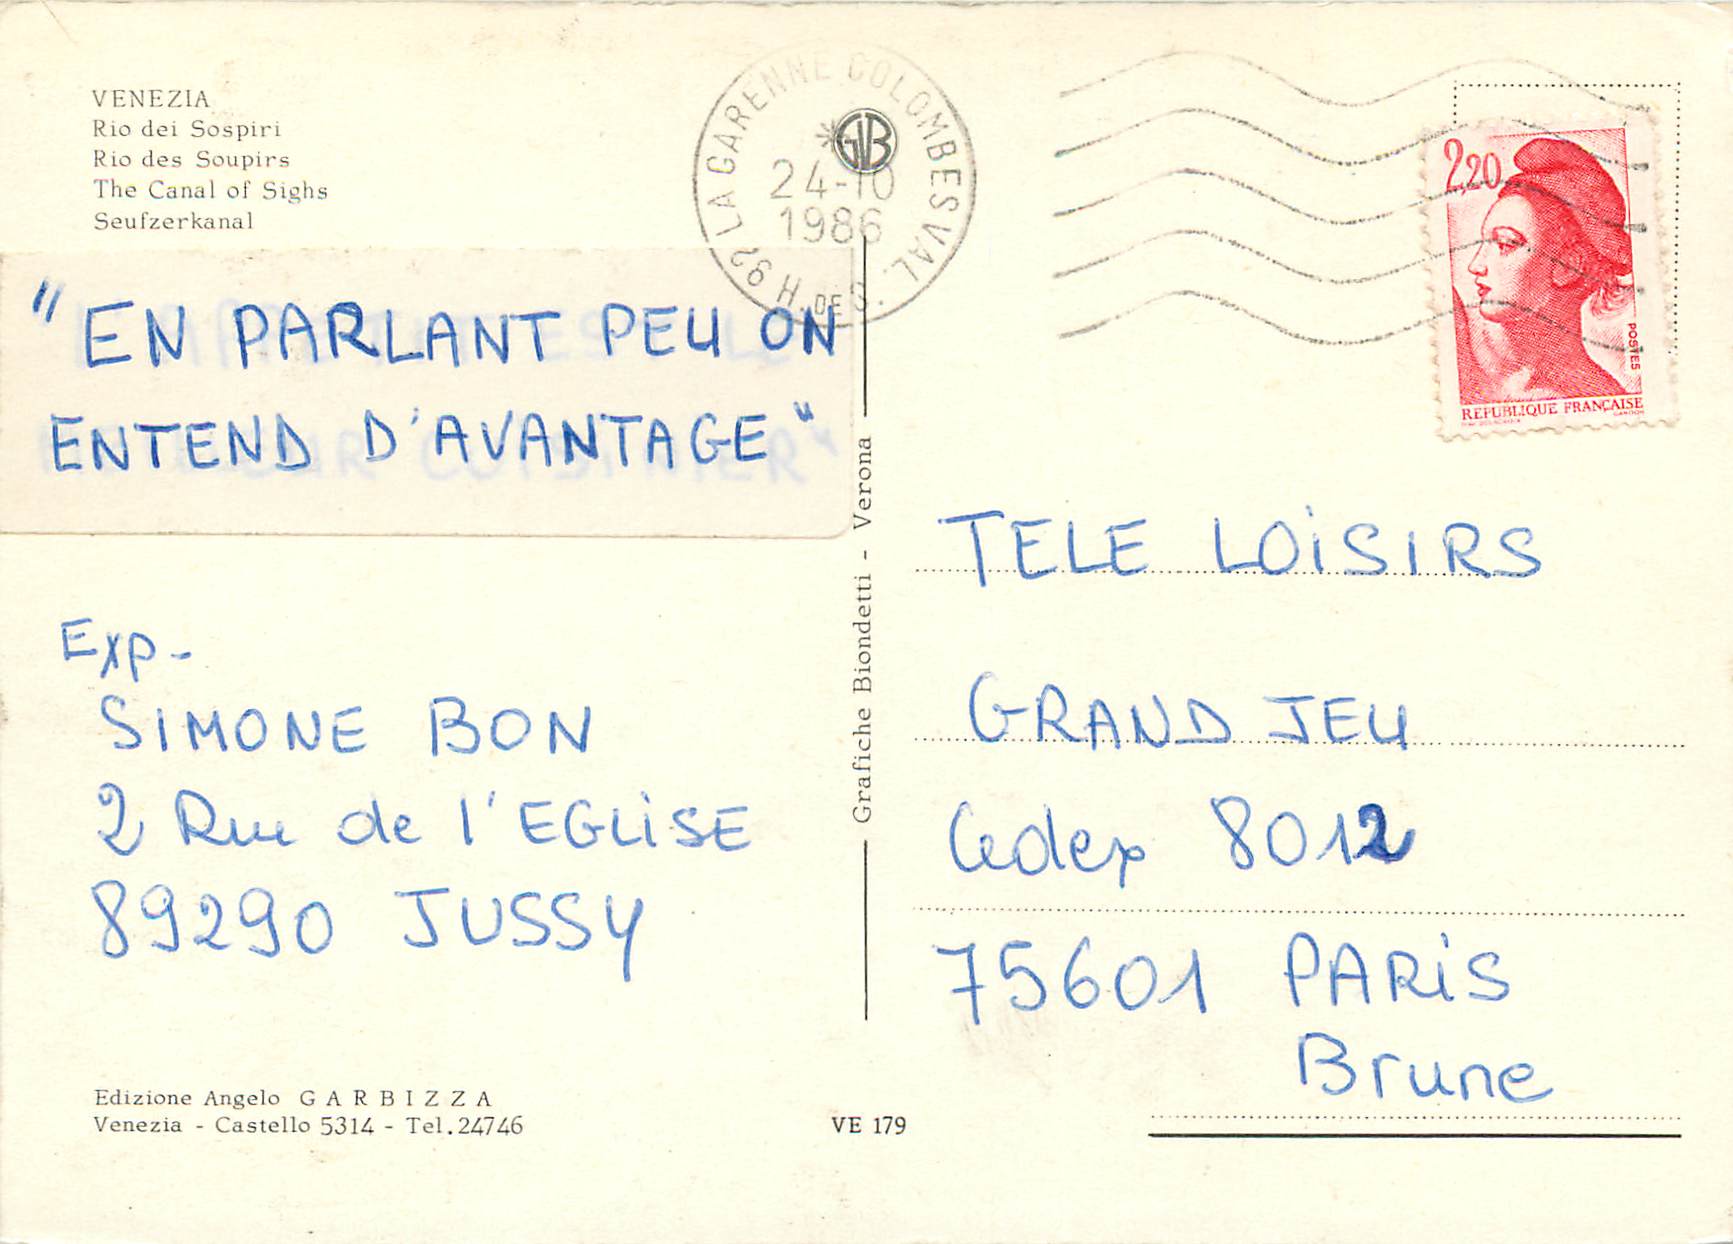 VENEZIA
Rio dei Sospiri
Rio des Soupirs
The Canal of Sighs
Seufzerkanal
"EN PARLANT PEU ON
ENTEND D'AVANTAGE"
Exp-
SIMONE BON
2 Rue de l'EGLiSE
89290 JUSSY
Edizione Angelo GARBIZZA
Venezia - Castello 5314 - Tel.24746
VE 179
Grafiche Biondetti - Verona
92 LA GARENNE COLOMBES VAL.
H. DE S.
GB
24-10
1986
2,20
POSTES
REPUBLIQUE FRANÇAISE
TELE LOiSIRS
GRAND JEU
Cedex 8012
75601 PARiS
Brune